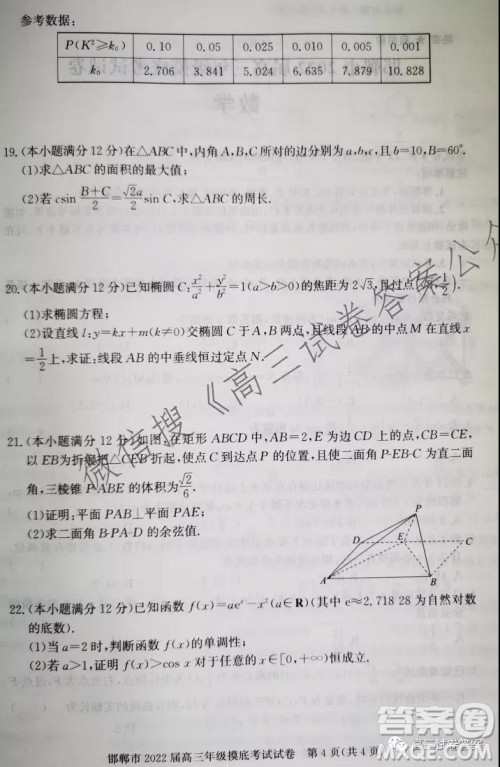 参考数据:
P(K²≥k₀) 0.10 0.05 0.025 0.010 0.005 0.001
k₀ 2.706 3.841 5.024 6.635 7.879 10.828
19.(本小题满分 12 分)在△ABC 中,内角 A,B,C 所对的边分别为 a,b,c,且 b=10,B=60°.
(1)求△ABC 的面积的最大值;
(2)若 csin (B+C)/2 = (√2a)/2 sin C,求△ABC 的周长.
20.(本小题满分 12 分)已知椭圆 C: x²/a² + y²/b² =1(a>b>0)的焦距为 2√3,且过点
(1)求椭圆方程;
(2)设直线 l:y=kx+m(k≠0)交椭圆 C 于 A,B 两点,且线段 AB 的中点 M 在直线 x
=1/2 上,求证:线段 AB 的中垂线恒过定点 N.
21.(本小题满分 12 分)如图,在矩形 ABCD 中,AB=2,E 为边 CD 上的点,CB=CE,
以 EB 为折痕把△CEB 折起,使点 C 到达点 P 的位置,且使二面角 P-EB-C 为直二面
角,三棱锥 P-ABE 的体积为 √2/6.
(1)证明:平面 PAB⊥平面 PAE;
(2)求二面角 B-PA-D 的余弦值.
P
D E C
A B
22.(本小题满分 12 分)已知函数 f(x)=aeˣ-x²(a∈R)(其中 e≈2.718 28 为自然对数
的底数).
(1)当 a=2 时,判断函数 f(x)的单调性;
(2)若 a>1,证明 f(x)>cos x 对于任意的 x∈[0,+∞)恒成立.
邯郸市 2022 届高三年级摸底考试试卷 第 4 页(共 4 页)
微信搜《高三试卷答案公众
高三试卷答案